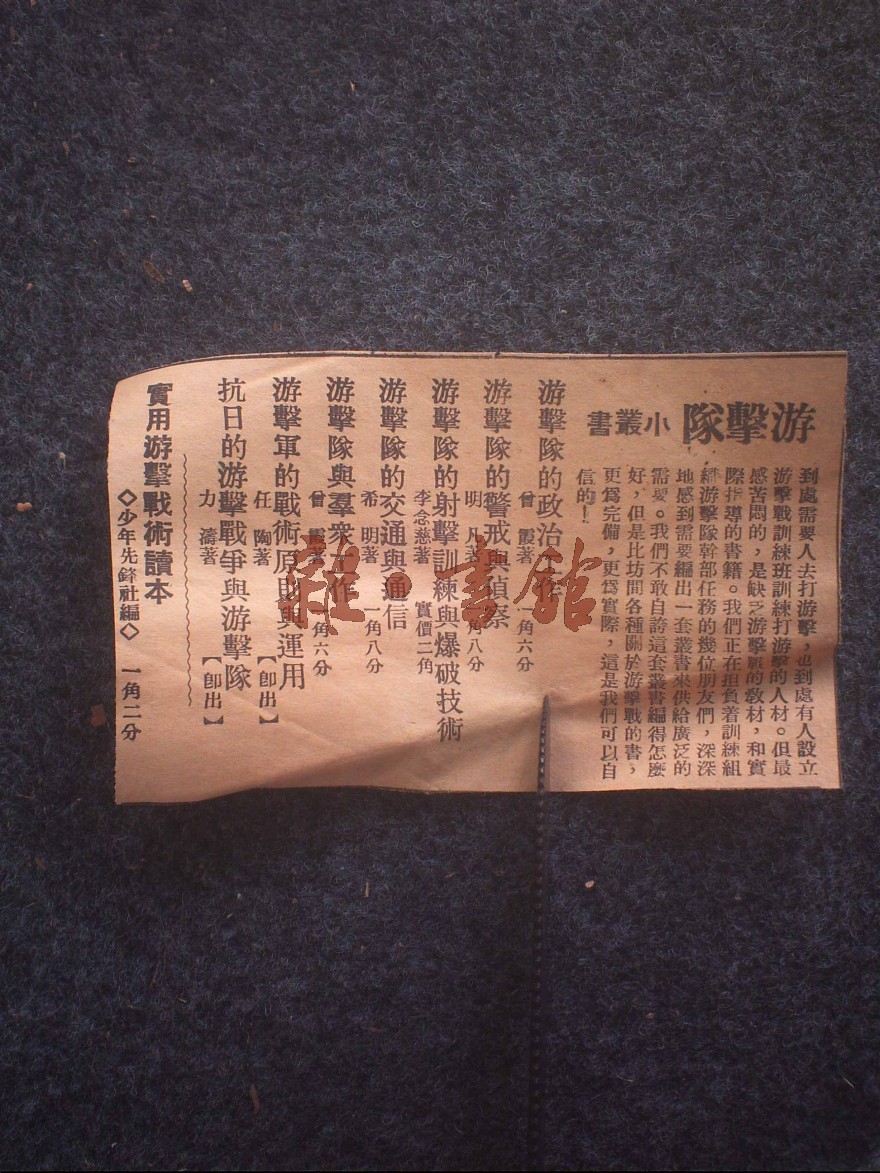 游擊隊小叢書
到處需要人去打游擊，也到處有人設立
游擊戰訓練班訓練打游擊的人材。但最
感苦悶的，是缺乏游擊戰的敎材，和實
際指導的書籍。我們正在担負着訓練組
織游擊隊幹部任務的幾位朋友們，深深
地感到需要編出一套叢書來供給廣泛的
需要。我們不敢自誇這套叢書編得怎麼
好，但是比坊間各種關於游擊戰的書，
更爲完備，更爲實際，這是我們可以自
信的！
游擊隊的政治工作
曾霞著 一角六分
游擊隊的警戒與偵察
明凡著 一角八分
游擊隊的射擊訓練與爆破技術
李念慈著 實價二角
游擊隊的交通與通信
希明著 一角八分
游擊隊與羣衆工作
曾霞著 一角六分
游擊軍的戰術原則與運用
任陶著 【卽出】
抗日的游擊戰爭與游擊隊
力濤著 【卽出】
實用游擊戰術讀本
◇少年先鋒社編◇ 一角二分
雜·書館